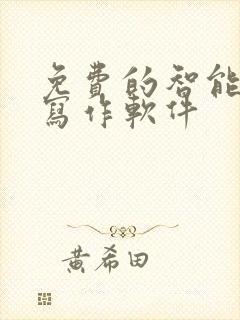 免費的智能
寫作軟件
黃希田